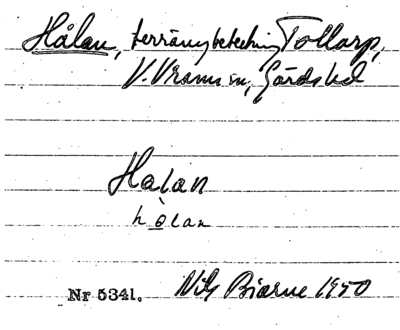 Hålan, terrängbeteckning Tollarp,
V. Vram sn, Gärds hd
Hålan
hòlan
Nr 5341. Nils Bjarne 1950